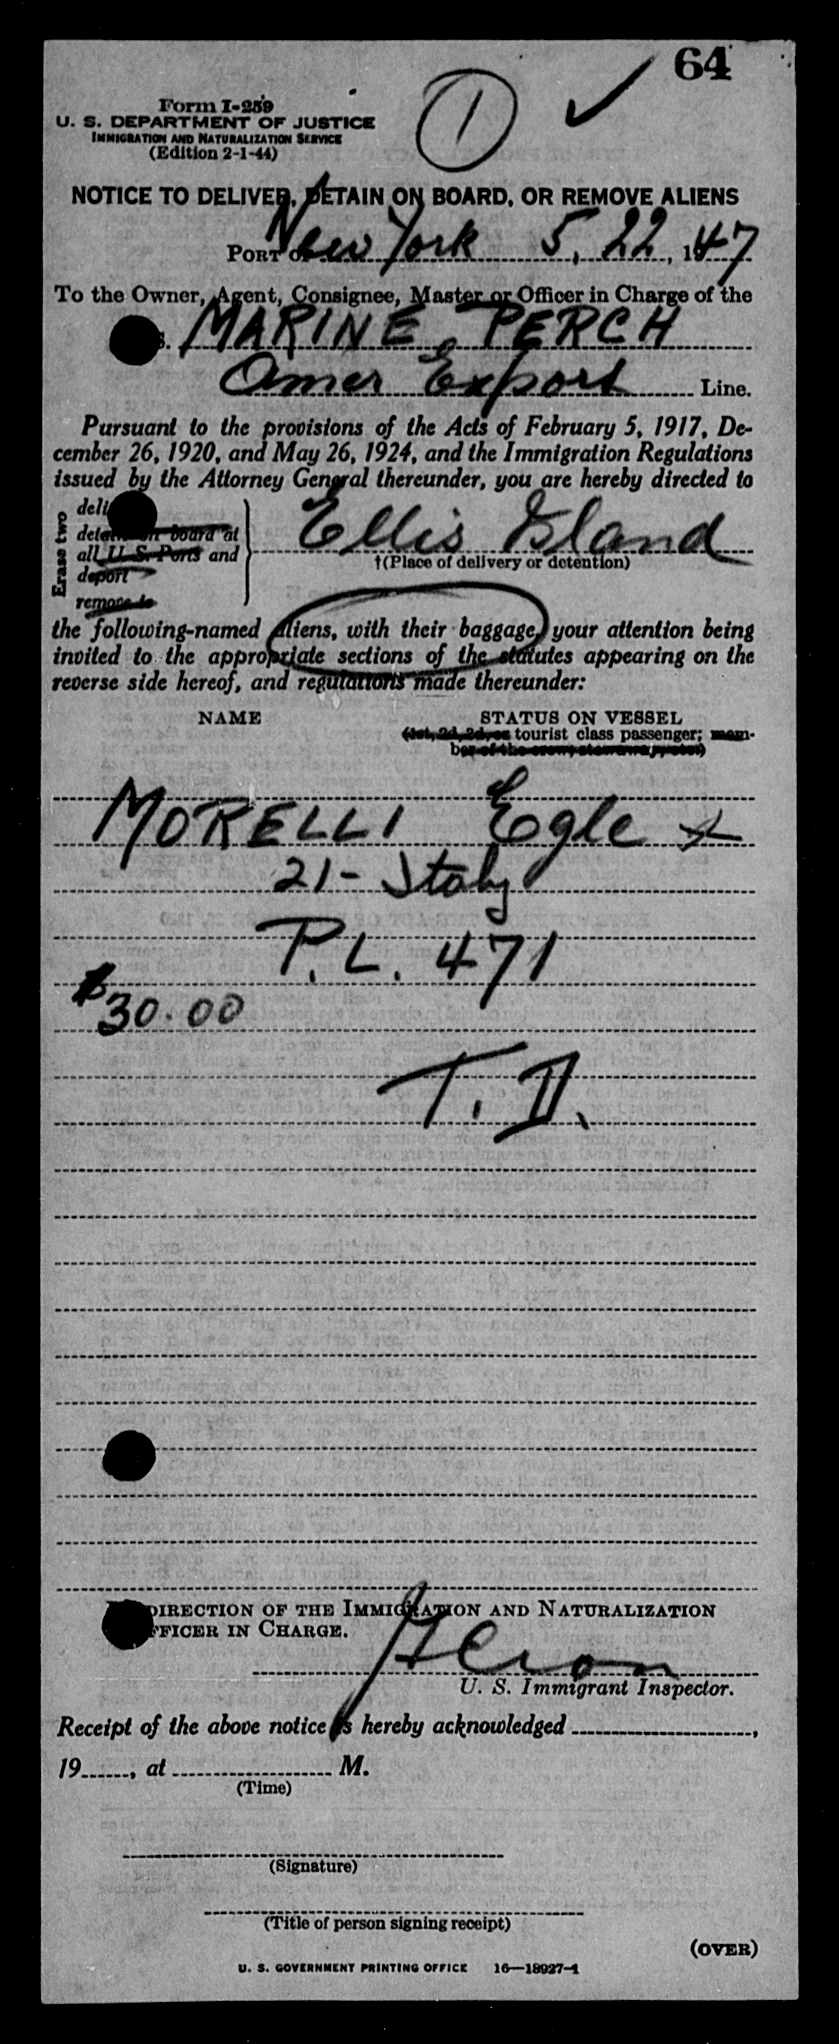 64
Form I-259
U. S. DEPARTMENT OF JUSTICE
IMMIGRATION AND NATURALIZATION SERVICE
(Edition 2-1-44)
1
NOTICE TO DELIVER, DETAIN ON BOARD, OR REMOVE ALIENS
PORT OF New York 5, 22, 1947
To the Owner, Agent, Consignee, Master or Officer in Charge of the
S. MARINE PERCH
Amer Export Line.
Pursuant to the provisions of the Acts of February 5, 1917, De-
cember 26, 1920, and May 26, 1924, and the Immigration Regulations
issued by the Attorney General thereunder, you are hereby directed to
Erase two
deli
detain on board at
all U. S. Ports and
deport
remove to
Ellis Island
†(Place of delivery or detention)
the following-named aliens, with their baggage, your attention being
invited to the appropriate sections of the statutes appearing on the
reverse side hereof, and regulations made thereunder:
NAME STATUS ON VESSEL
(1st, 2d, 3d, or tourist class passenger; mem-
ber of the crew; stowaway, etc.)
MORELLI Egle x
21- Italy
P.L. 471
$30.00
T. D.
DIRECTION OF THE IMMIGRATION AND NATURALIZATION
FFICER IN CHARGE.
U. S. Immigrant Inspector.
Receipt of the above notice is hereby acknowledged ,
19 , at M.
(Time)
(Signature)
(Title of person signing receipt)
(OVER)
U. S. GOVERNMENT PRINTING OFFICE 16—18927-1